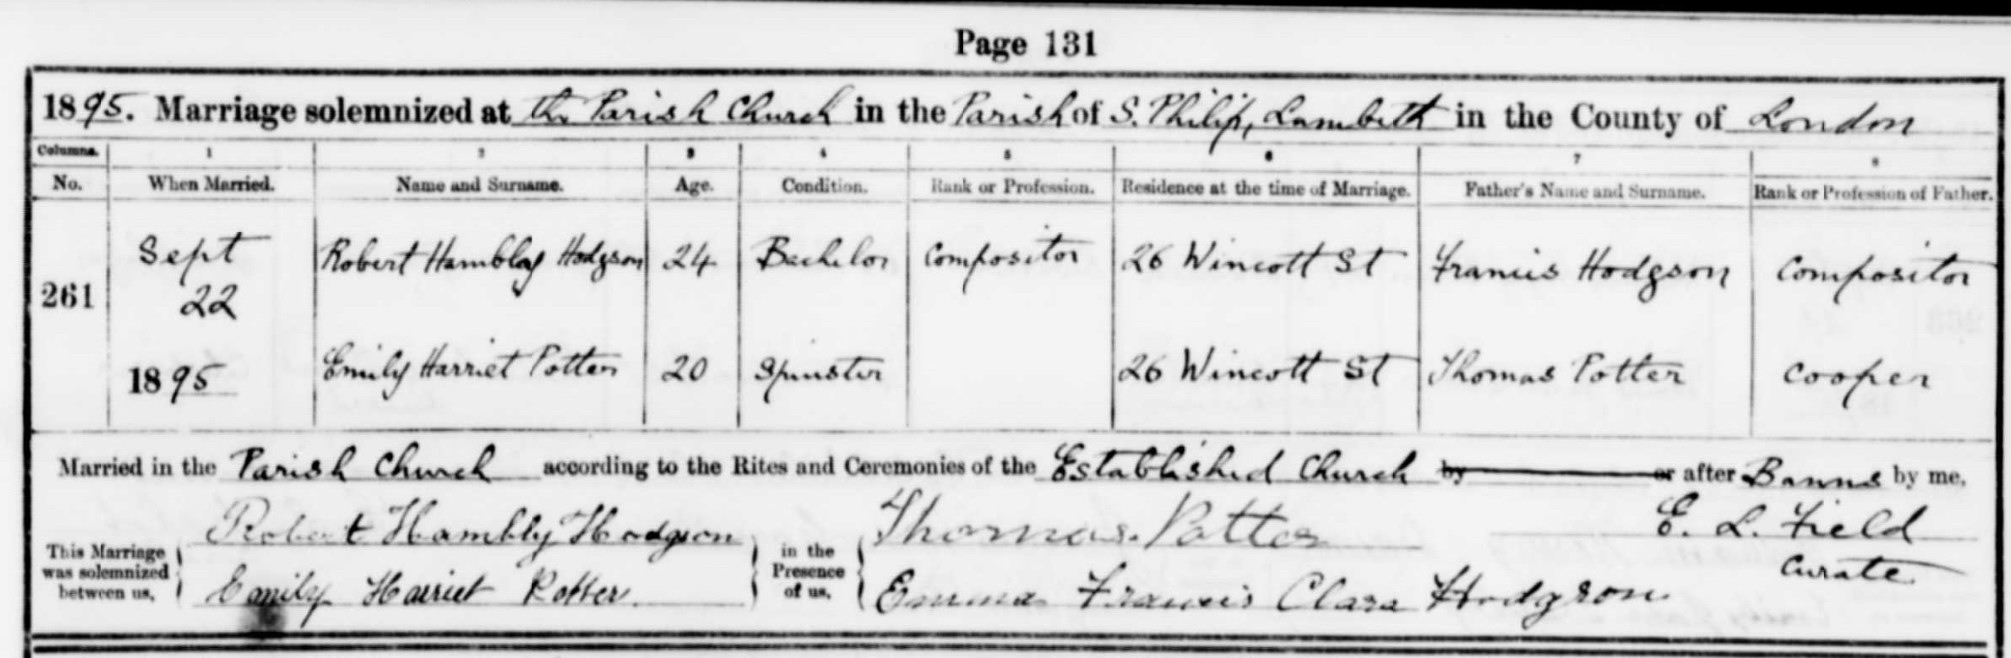 Page 131
1895. Marriage solemnized at the Parish Church in the Parish of S. Philip, Lambeth in the County of London
Columns. 1 2 3 4 5 6 7 8
No. When Married. Name and Surname. Age. Condition. Rank or Profession. Residence at the time of Marriage. Father's Name and Surname. Rank or Profession of Father.
261 Sept 22 1895 Robert Hambly Hodgson 24 Bachelor Compositor 26 Wincott St Francis Hodgson Compositor
Emily Harriet Potter 20 Spinster 26 Wincott St Thomas Potter Cooper
Married in the Parish Church according to the Rites and Ceremonies of the Established Church by or after Banns by me,
E. L. Field
Curate
This Marriage was solemnized between us, Robert Hambly Hodgson
Emily Harriet Potter
in the Presence of us, Thomas Potter
Emma Francis Clara Hodgson